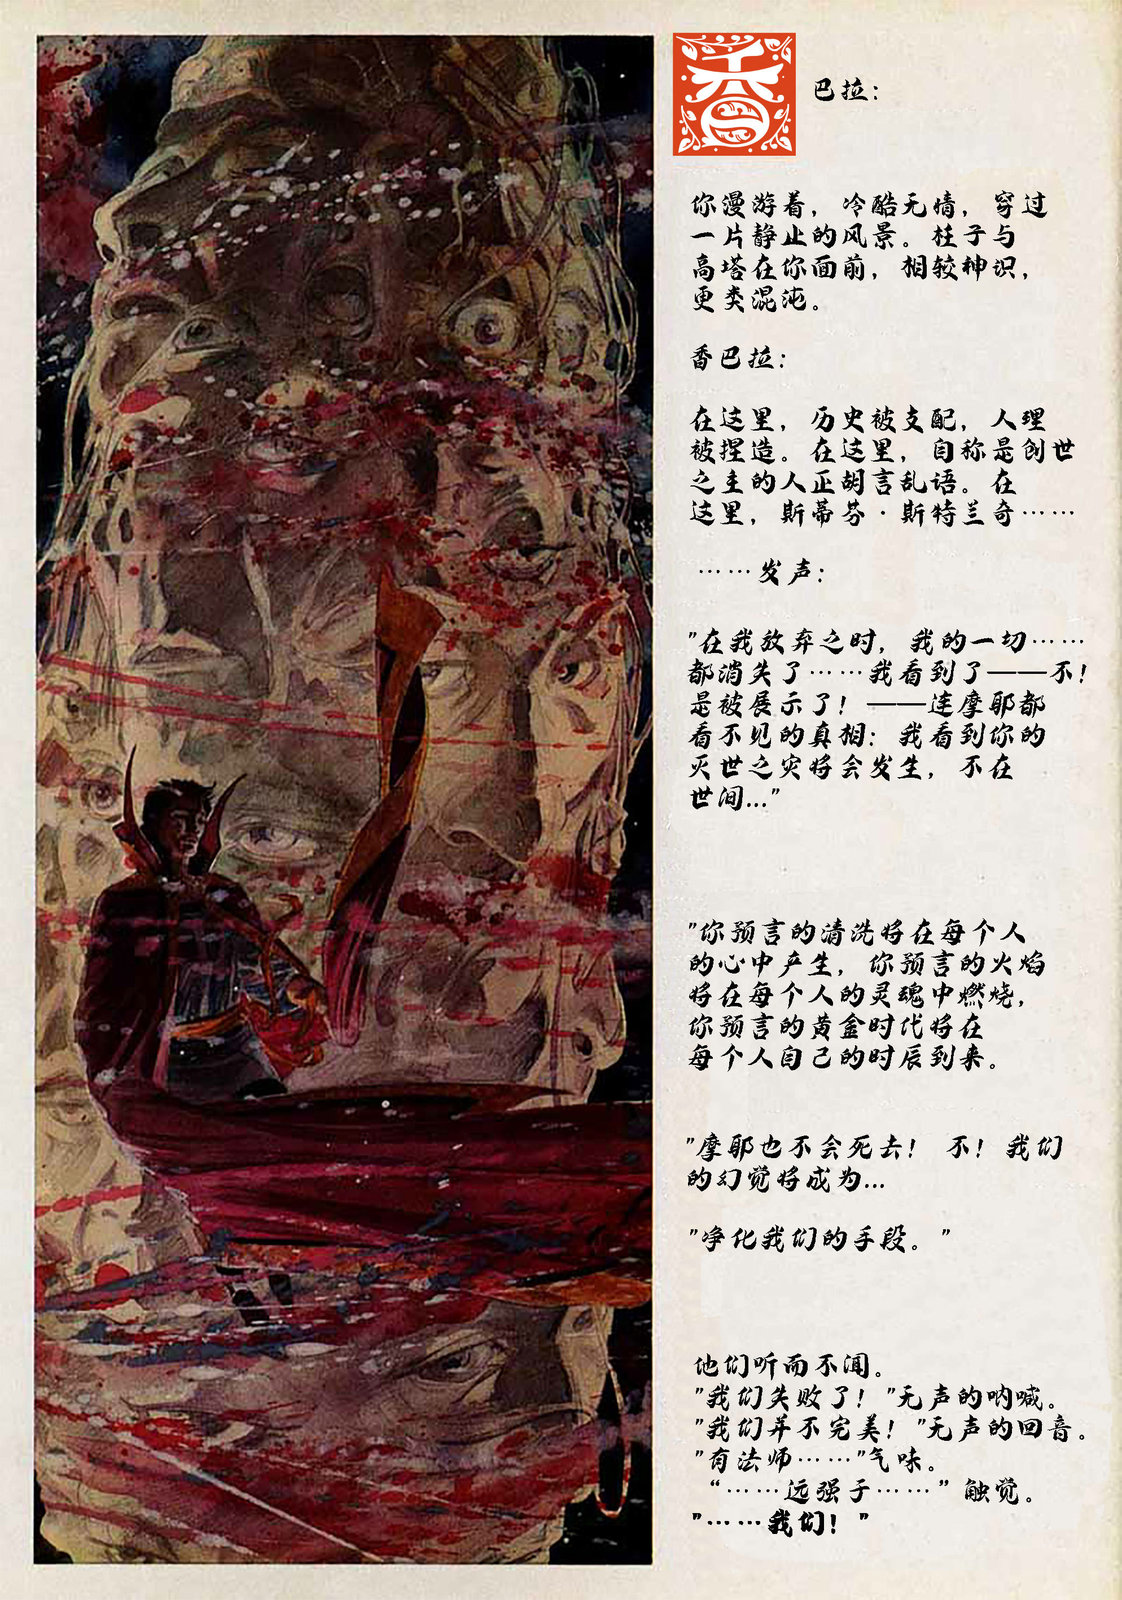 香巴拉：
你漫游着，冷酷无情，穿过
一片静止的风景。柱子与
高塔在你面前，相较神识，
更类混沌。
香巴拉：
在这里，历史被支配，人理
被捏造。在这里，自称是创世
之主的人正胡言乱语。在
这里，斯蒂芬·斯特兰奇……
……发声：
"在我放弃之时，我的一切……
都消失了……我看到了——不！
是被展示了！——连摩耶都
看不见的真相：我看到你的
灭世之灾将会发生，不在
世间..."
"你预言的清洗将在每个人
的心中产生，你预言的火焰
将在每个人的灵魂中燃烧，
你预言的黄金时代将在
每个人自己的时辰到来。
"摩耶也不会死去！ 不！我们
的幻觉将成为...
"净化我们的手段。"
他们听而不闻。
"我们失败了！"无声的呐喊。
"我们并不完美！"无声的回音。
"有法师……"气味。
“……远强于……”触觉。
"……我们！"